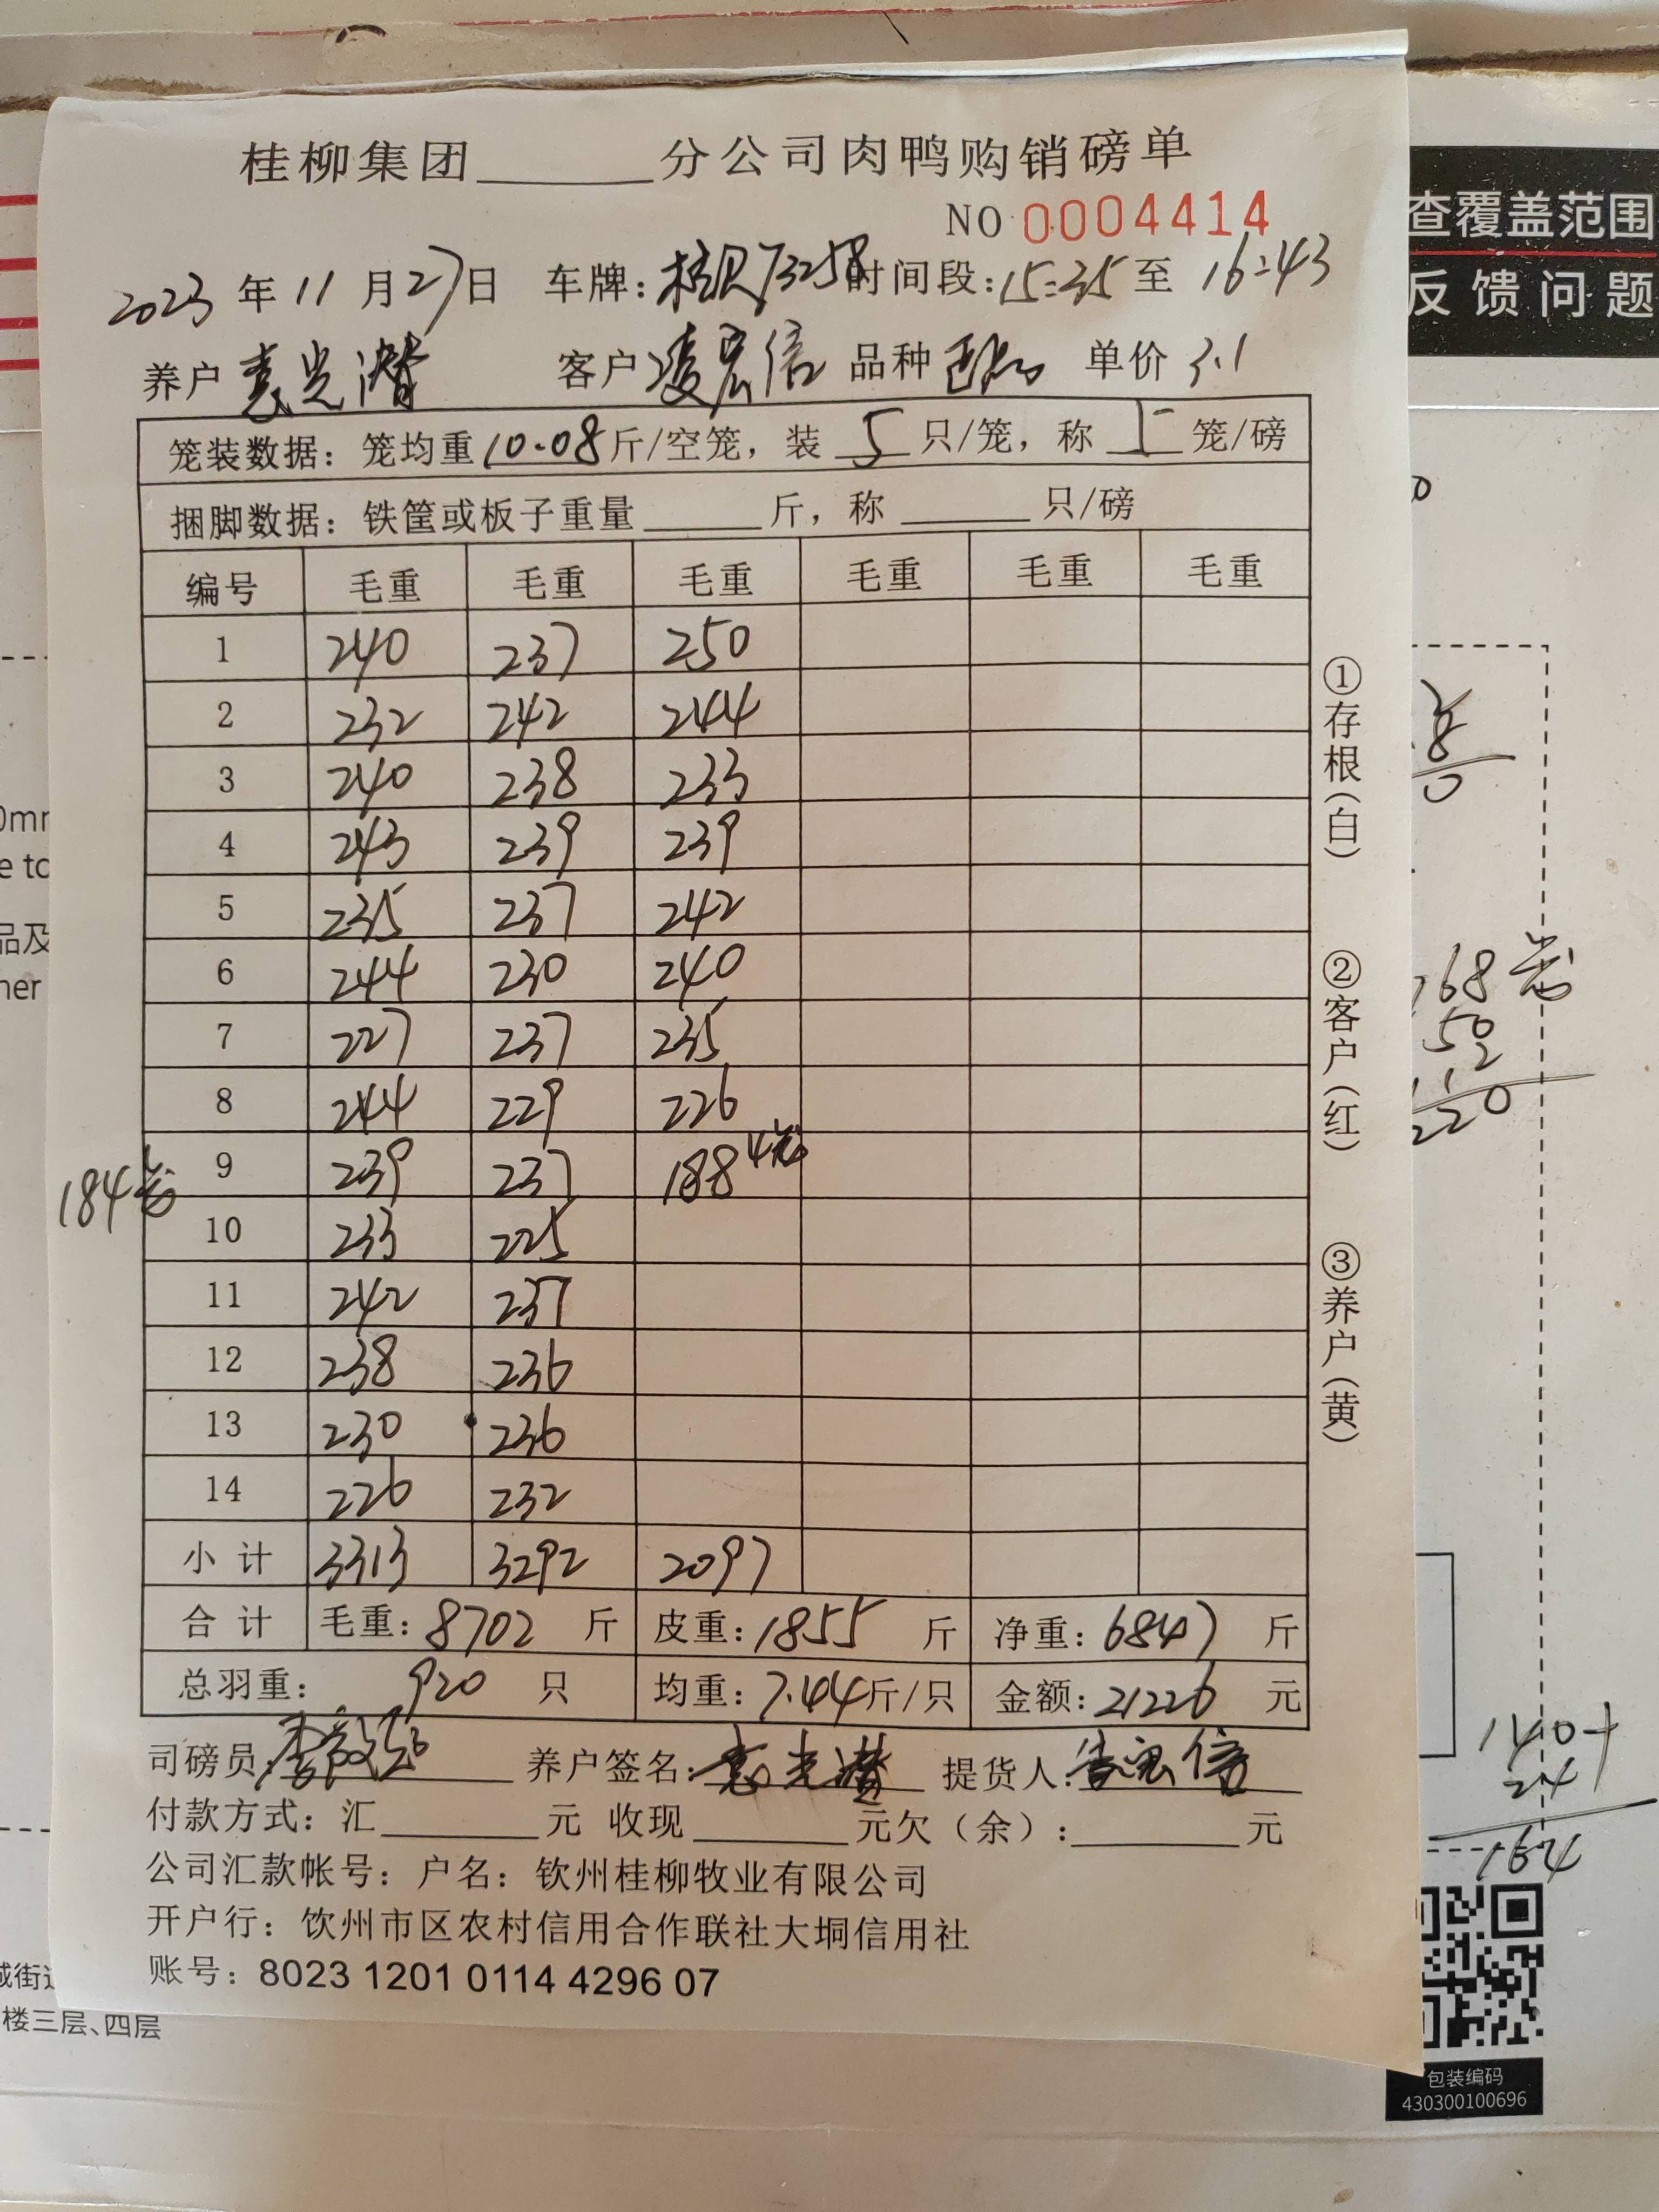 桂柳集团______分公司肉鸭购销磅单
NO 0004414
2023年11月27日 车牌:桂R73258 时间段:15:35至16:43
养户 袁光潜 客户 凌宏信 品种 单价 3.1
笼装数据：笼均重10.08斤/空笼，装 5 只/笼，称 5 笼/磅
捆脚数据：铁筐或板子重量______斤，称______只/磅
编号 毛重 毛重 毛重 毛重 毛重 毛重
1 240 237 250
2 232 242 244
3 240 238 233
4 243 239 239
5 235 237 242
6 244 230 240
7 227 237 235
8 244 229 226
9 239 237 188 4笼
184笼
10 233 225
11 242 237
12 238 236
13 230 236
14 226 232
小计 3313 3292 2097
合计 毛重：8702 斤 皮重：1855 斤 净重：6847 斤
总羽重： 920 只 均重：7.44斤/只 金额：21226 元
司磅员: 养户签名:袁光潜 提货人:
付款方式：汇______元 收现______元欠（余）:______元
公司汇款帐号：户名：钦州桂柳牧业有限公司
开户行：饮州市区农村信用合作联社大垌信用社
账号：8023 1201 0114 4296 07
①存根（白）
②客户（红）
③养户（黄）
查覆盖范围
反馈问题
168笼
50
140+
24
164
包装编码
430300100696
楼三层、四层